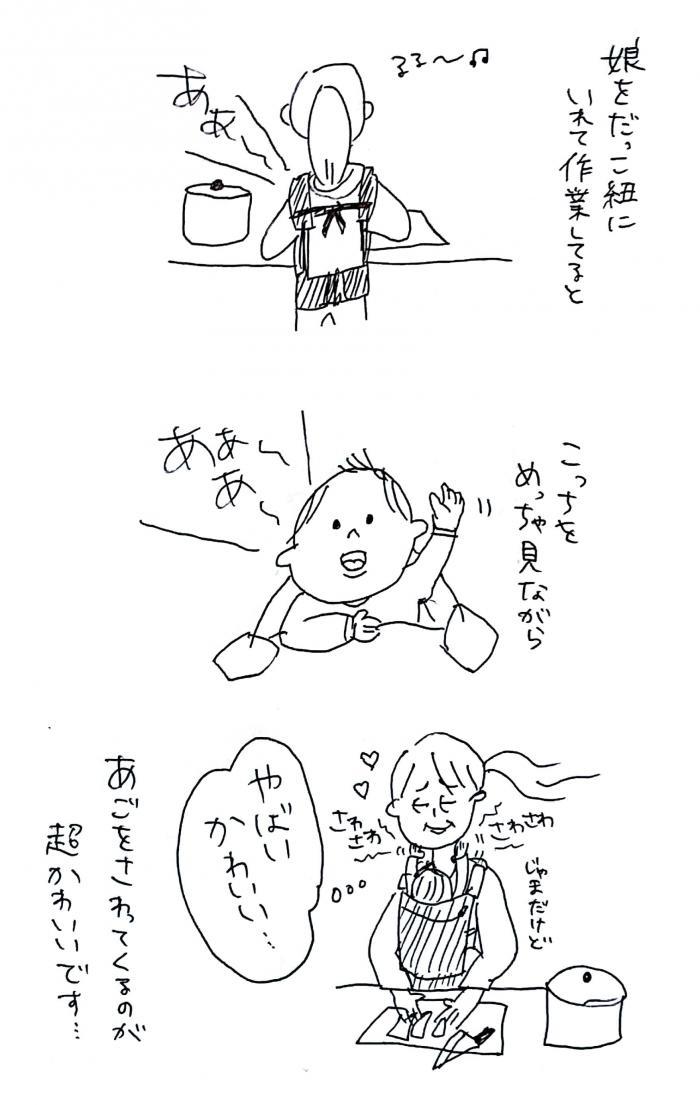 娘をだっこ紐に
いれて作業してると
るる〜♫
ああ〜
こっちを
めっちゃ見ながら
ああ〜
あ〜
やばい
かわいい…
さわ
さわ
さわさわ
じゃまだけど
あごをさわってくるのが
超かわいいです…